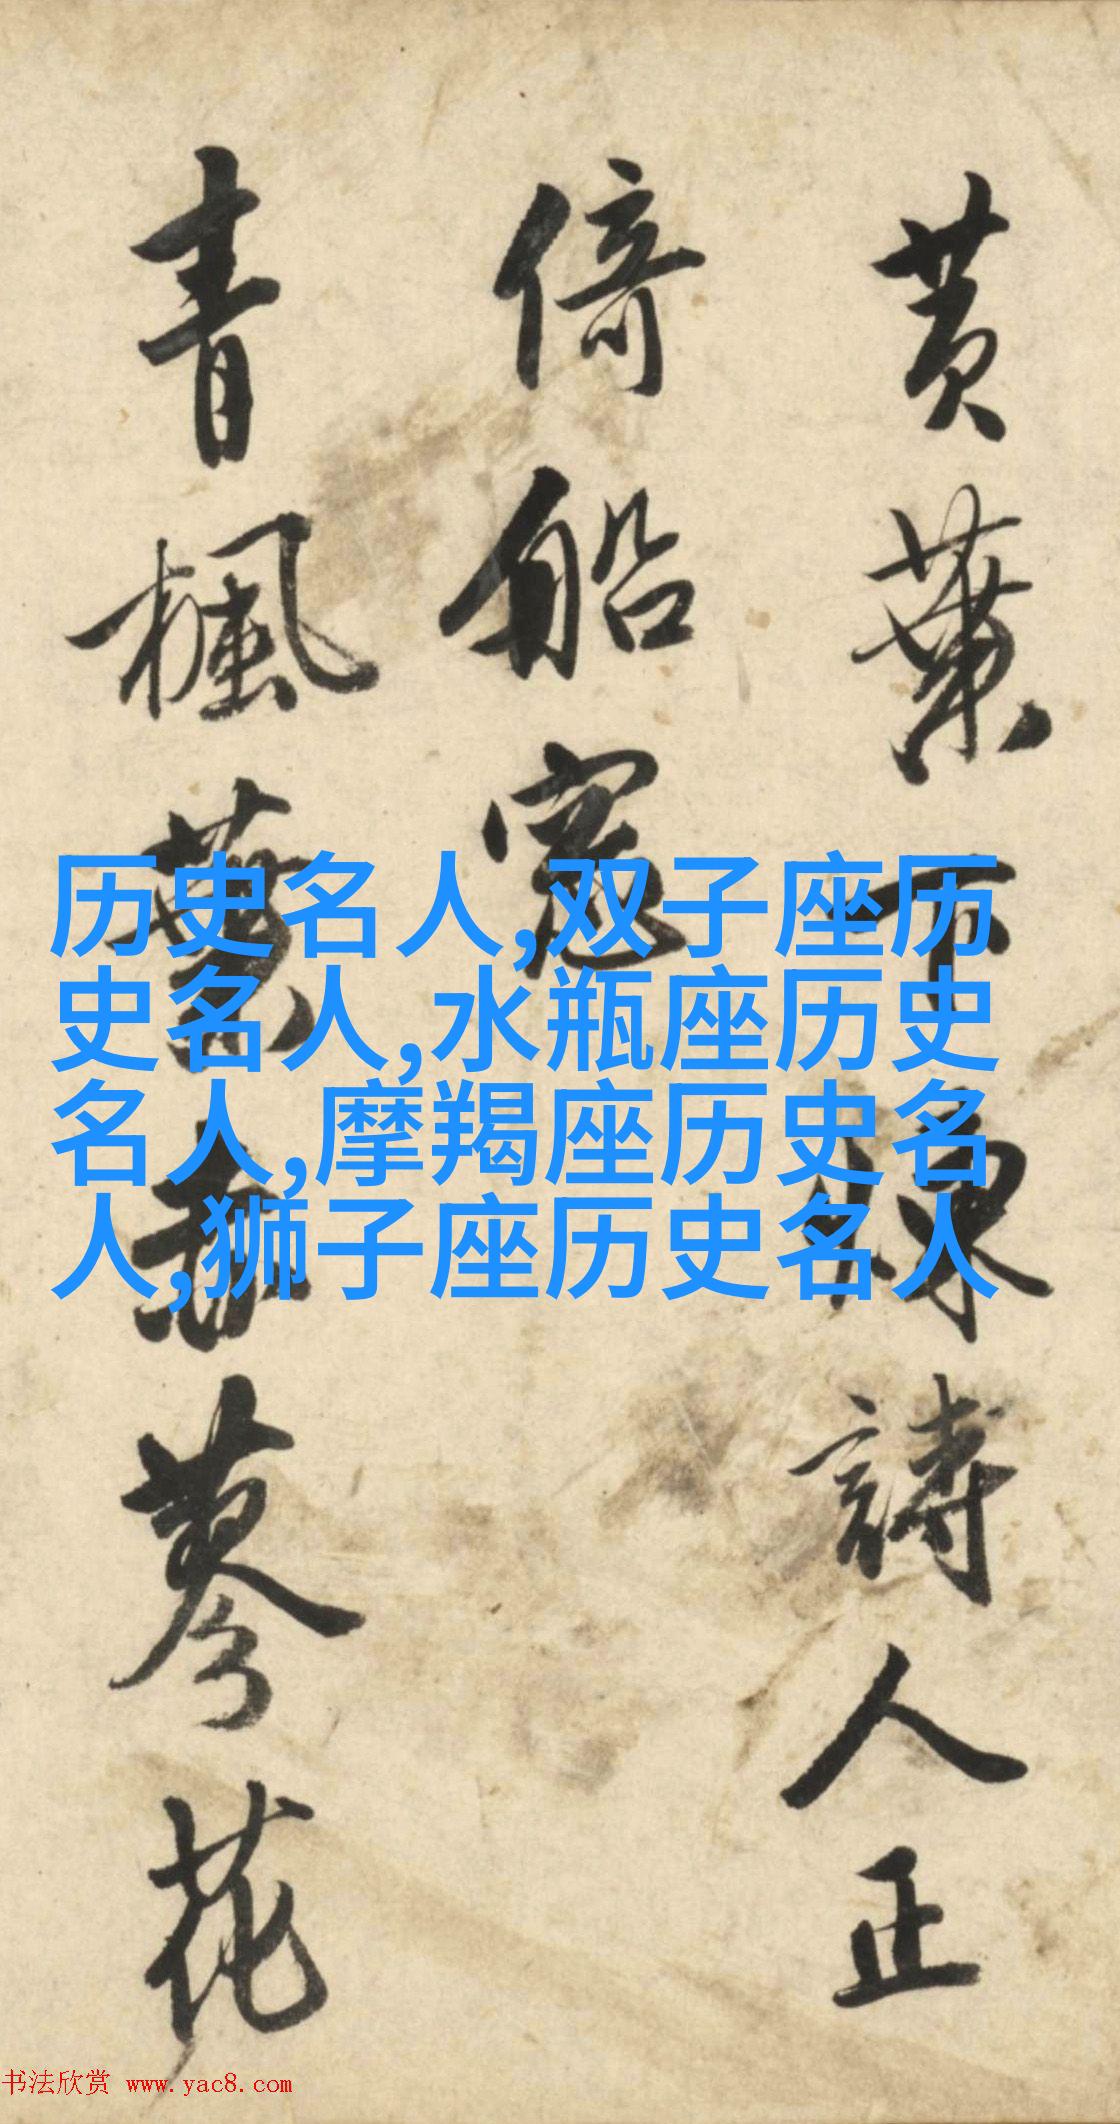 黄葉下詩人正
倚船窓
青楓葉赤蓼花
历史名人,双子座历
史名人,水瓶座历史
名人,摩羯座历史名
人,狮子座历史名人
书法欣赏 www.yac8.com